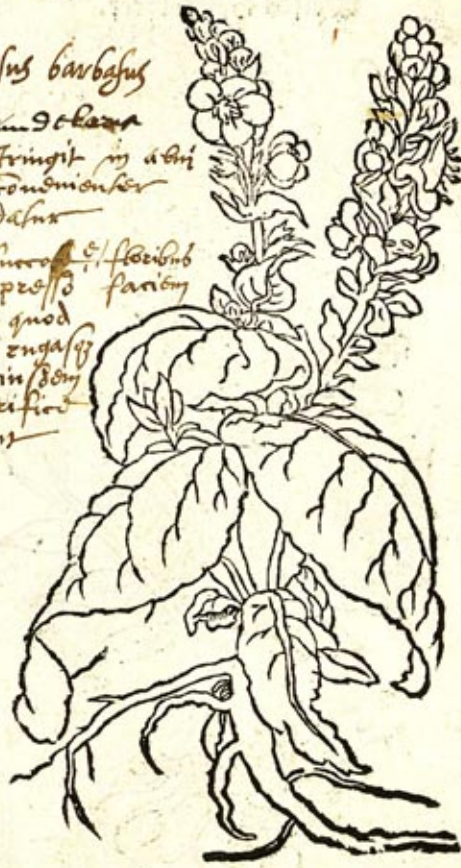 sus barbasus
stringit in alvi
convenienter
datur
succo e floribus
presso faciem
quod
rugasqz
eiusdem
rifice
nt